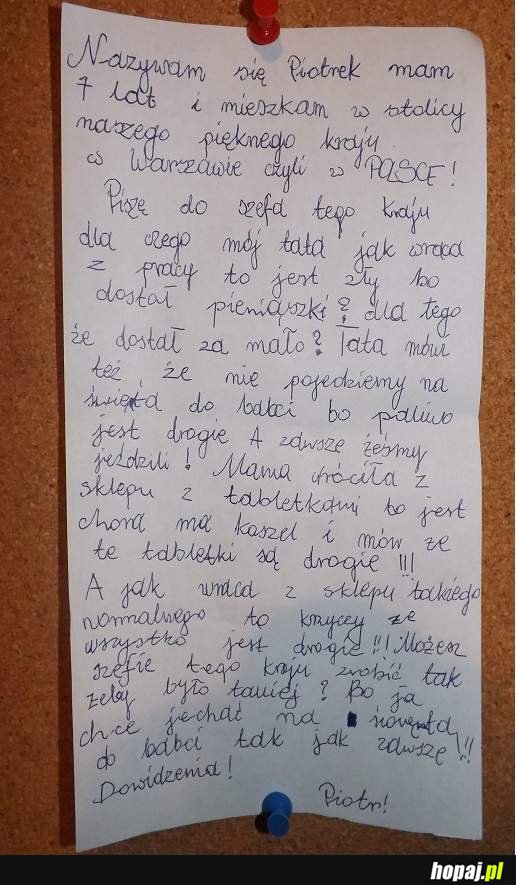 Nazywam się Piotrek mam
7 lat i mieszkam w stolicy
naszego pięknego kraju
w Warszawie czyli w POLSCE!
Piszę do szefa tego kraju
dla czego mój tata jak wraca
z pracy to jest zły bo
dostał pieniąszki? dla tego
że dostał za mało? Tata mówi
też że nie pojedziemy na
święta do babci bo paliwo
jest drogie A zawsze żeśmy
jeździli! Mama wróciła z
sklepu z tabletkami bo jest
chora ma kaszel i mów ze
te tabletki są drogie!!!
A jak wraca z sklepu takiego
normalnego to krzyczy ze
wszystko jest drogie!!! Możesz
szefie tego kraju zrobić tak
zeby było taniej? Bo ja
chce jechać na święta
do babci tak jak zawsze!!!
Dowidzenia!
Piotr!
hopaj.pl